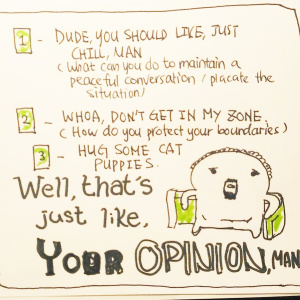 1 - DUDE, YOU SHOULD LIKE, JUST
CHILL, MAN
(What can you do to maintain a
peaceful conversation / placate the
situation/
2 - WHOA, DON'T GET IN MY ZONE.
(How do you protect your boundaries)
3 - HUG SOME CAT
PUPPIES.
Well, that's
just like,
YOUR OPINION, MAN